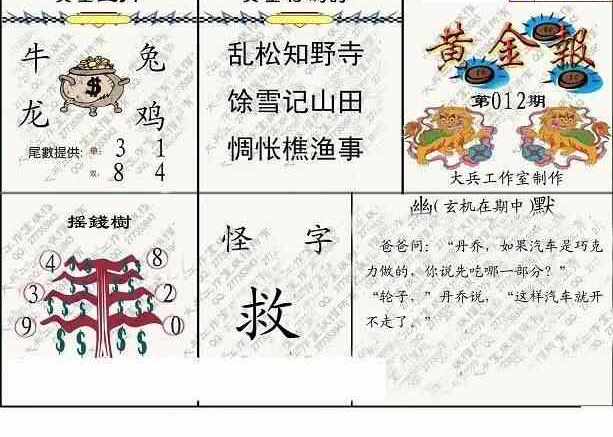 牛 兔
龙 鸡
$
尾數提供: 单: 3 1
双: 8 4
乱松知野寺
馀雪记山田
惆怅樵渔事
黄金報
第012期
大兵工作室制作
摇錢樹
4 8
3 2
9 0
$ $ $ $ $ $ $ $
怪 字
救
幽(玄机在期中)默
爸爸问：“丹乔，如果汽车是巧克
力做的，你说先吃哪一部分？”
“轮子，”丹乔说，“这样汽车就开
不走了。”